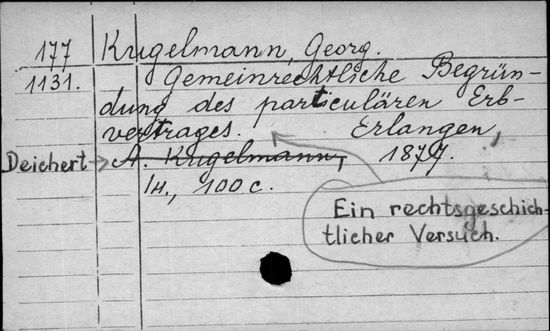 177 Krugelmann, Georg.
1131. Gemeinrechtliche Begrün-
dung des particulären Erb-
vertrages. Erlangen,
Deichert → A. Krugelmann, 1877.
IH., 100 c.
Ein rechtsgeschich-
tlicher Versuch.